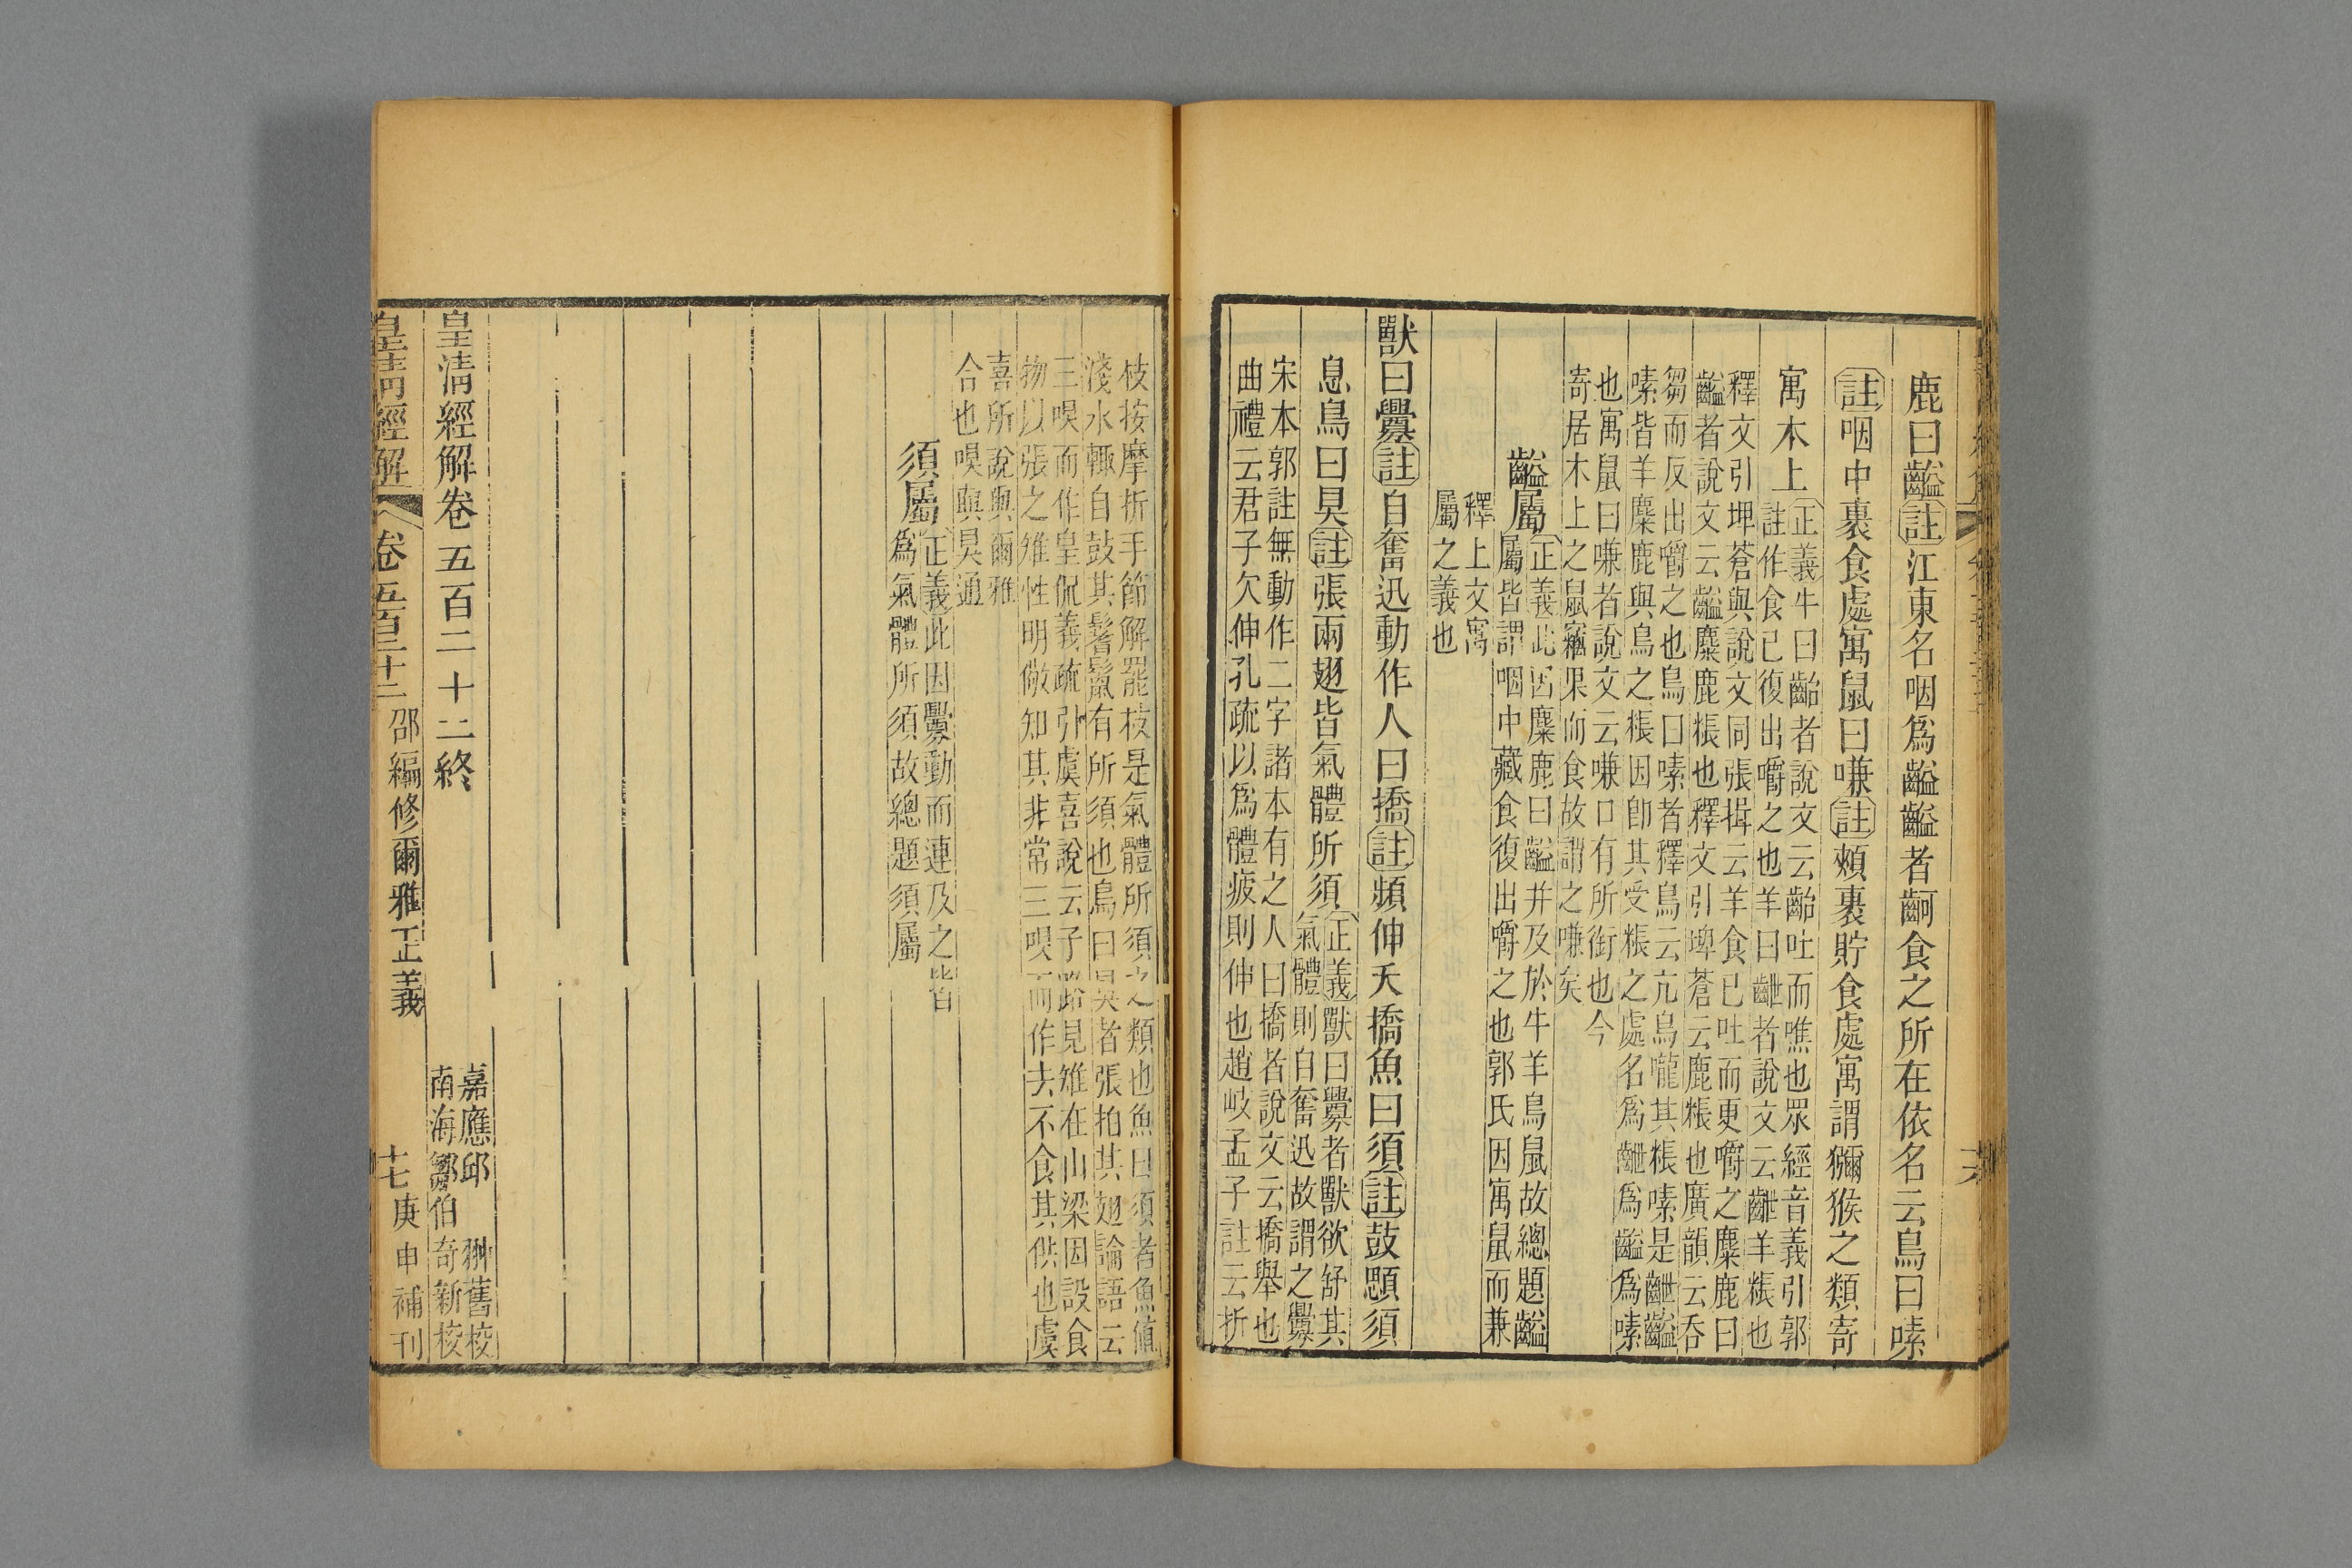 鹿曰齸註江東名咽爲齸齸者齝食之所在依名云鳥曰嗉
註咽中裹食處寓鼠曰嗛註頰裏貯食處寓謂獼猴之類寄
寓木上
正義牛曰齝者說文云齝吐而噍也眾經音義引郭
註作食已復出嚼之也羊曰齥者說文云齥羊粻也
釋文引埤蒼與說文同張揖云羊食已吐而更嚼之麋鹿曰
齸者說文云齸麋鹿粻也釋文引埤蒼云鹿粻也廣韻云吞
芻而反出嚼之也鳥曰嗉者釋鳥云亢鳥嚨其粻嗉是齥齸
嗉皆羊麋鹿與鳥之粻因卽其受粻之處名爲齥爲齸爲嗉
也寓鼠曰嗛者說文云嗛口有所銜也今
寄居木上之鼠竊果而食故謂之嗛矣
齸屬
正義此因麋鹿曰齸并及於牛羊鳥鼠故總題齸
屬皆謂咽中藏食復出嚼之也郭氏因寓鼠而兼
釋上文寓
屬之義也
獸曰釁註自奮迅動作人曰撟註頻伸夭撟魚曰須註鼓顋須
息鳥曰狊註張兩翅皆氣體所須
正義獸曰釁者獸欲舒其
氣體則自奮迅故謂之釁
宋本郭註無動作二字諸本有之人曰撟者說文云撟舉也
曲禮云君子欠伸孔疏以爲體疲則伸也趙岐孟子註云折
枝按摩折手節解罷枝是氣體所須之類也魚曰須者魚値
淺水輒自鼓其鬐鬣有所須也鳥曰狊者張拍其翅論語云
三嗅而作皇侃義疏引虞喜說云子路見雉在山梁因設食
物以張之雉性明儆知其非常三嗅而作去不食其供也虞
喜所說與爾雅
合也嗅與狊通
須屬
正義此因釁動而連及之皆
爲氣體所須故總題須屬
皇淸經解卷五百二十二終
嘉應邱翀舊校
南海鄒伯奇新校
皇淸經解
卷五百二十二
邵編修爾雅正義
十七
庚申補刊